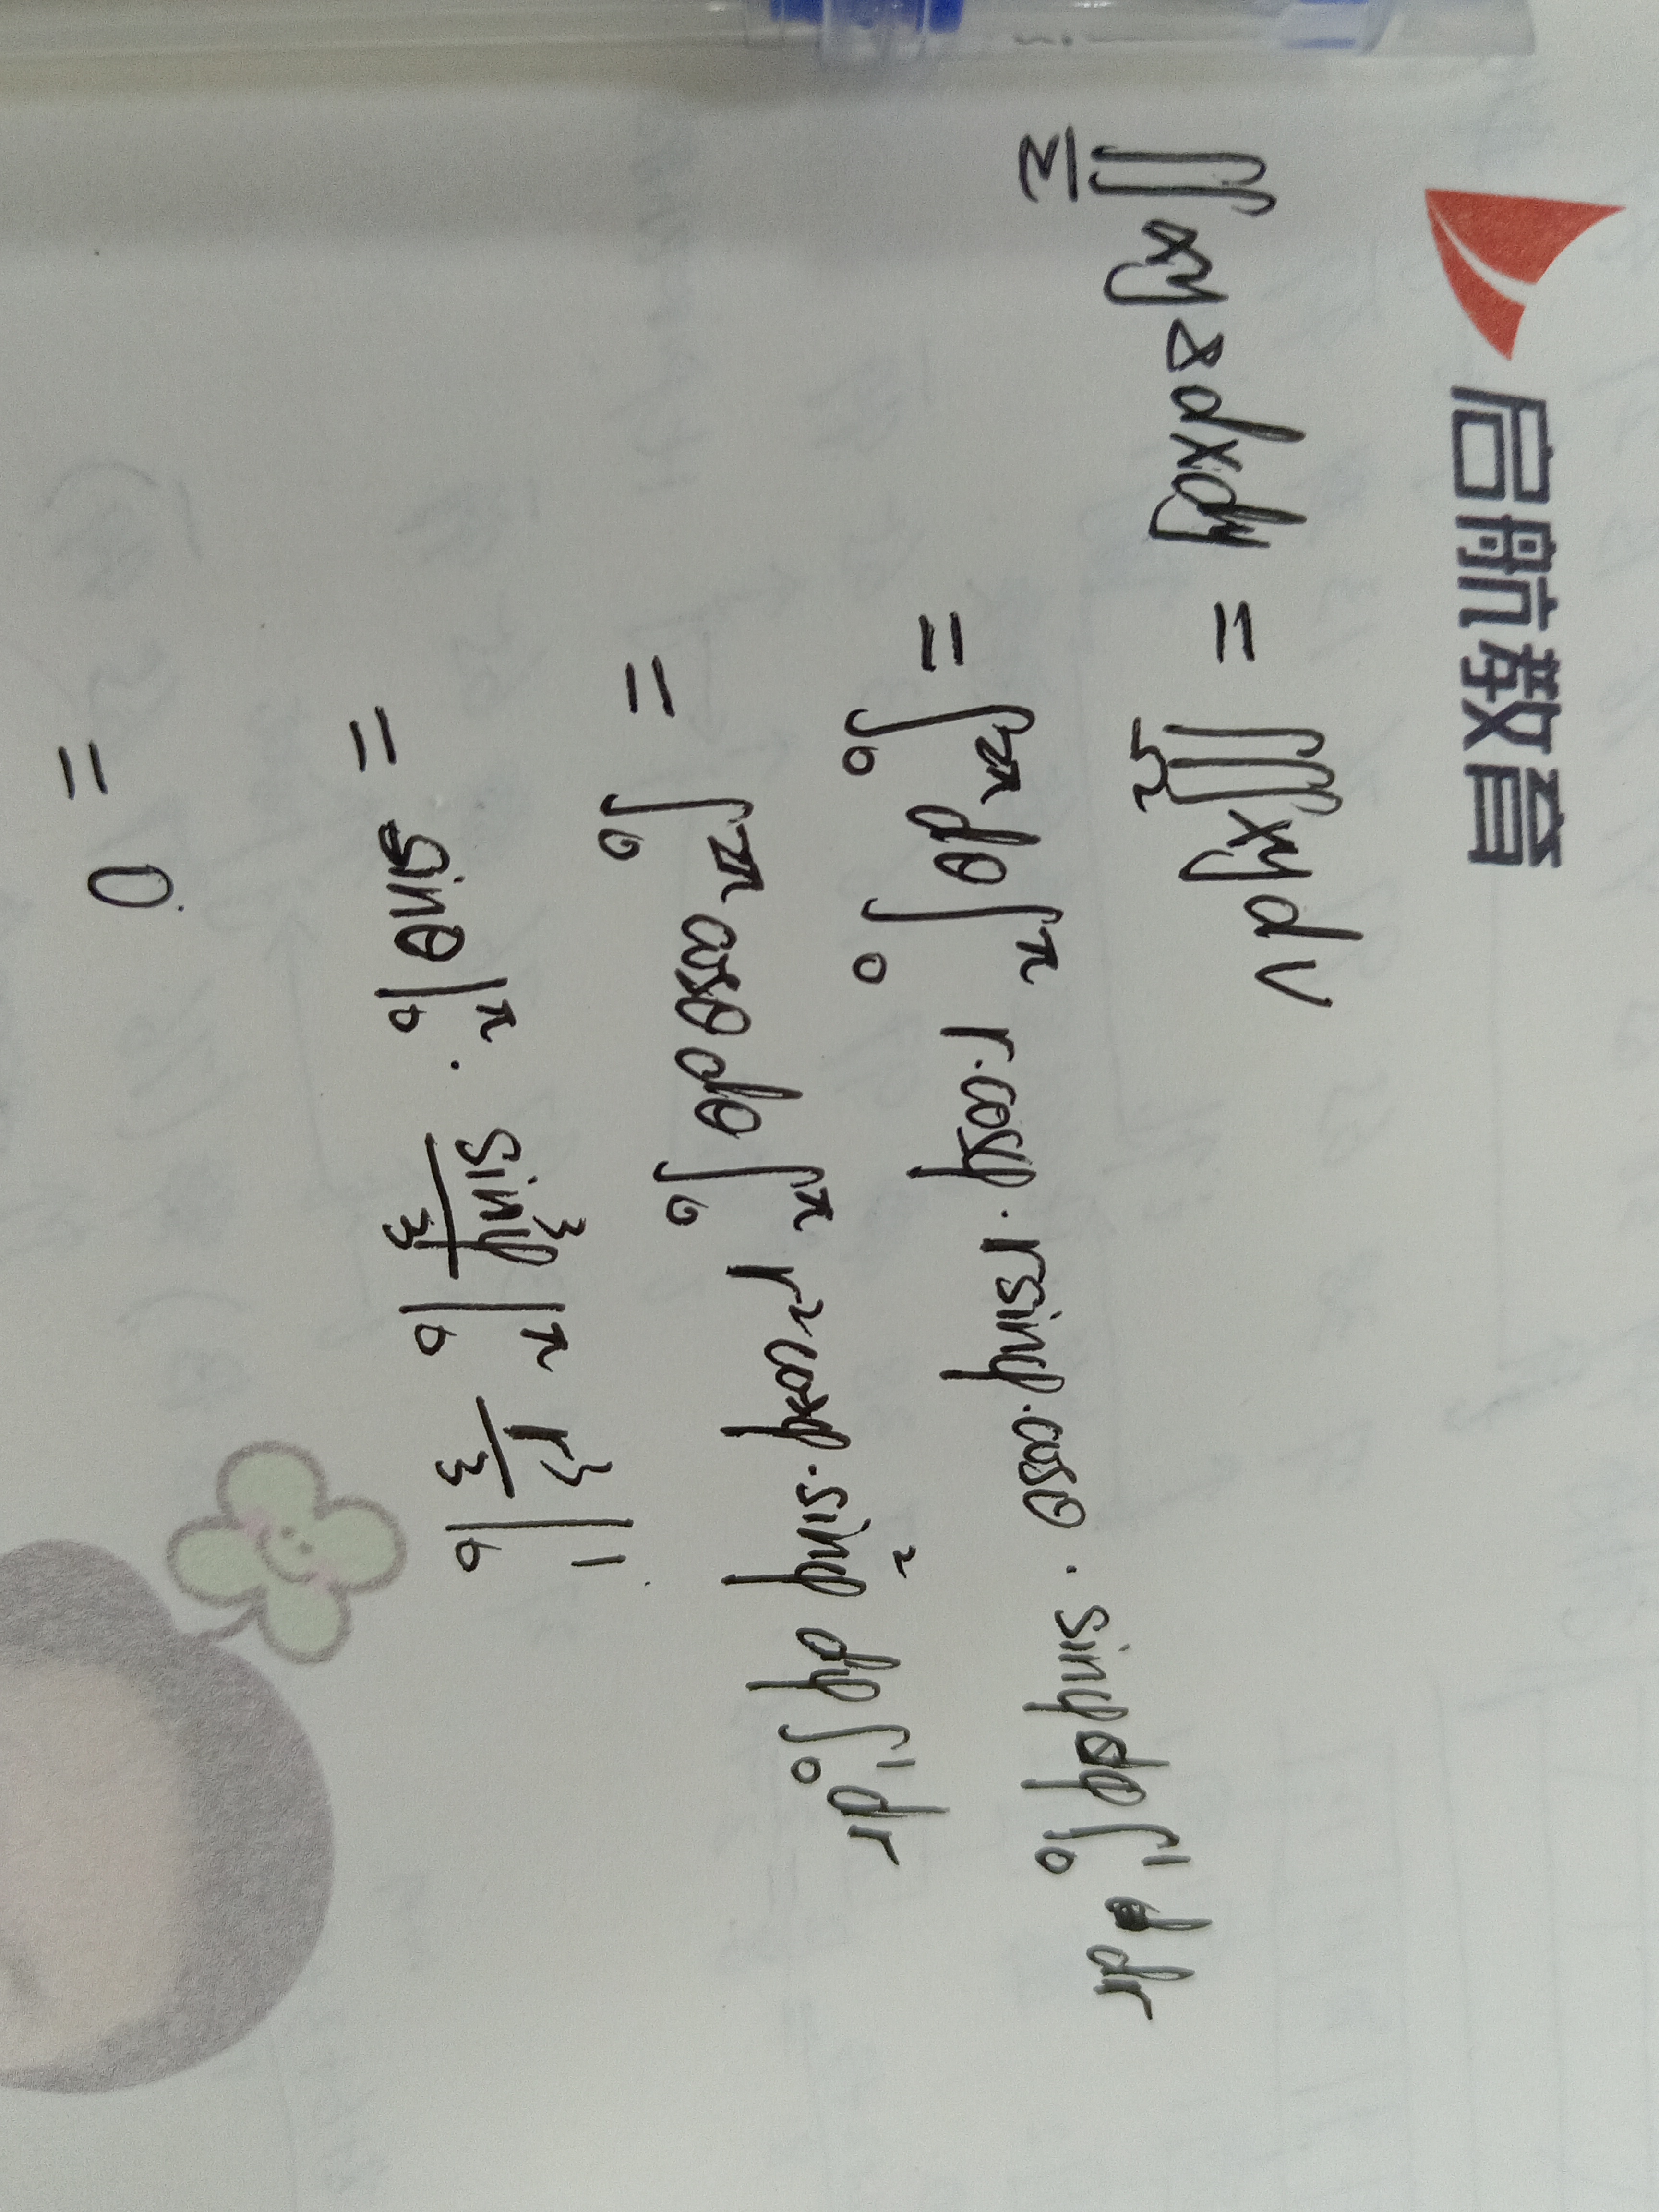 启航教育
∬_Σ xyz dxdy = ∭_Ω xy dV
= ∫_0^{π/2} dθ ∫_0^π r·cosφ · r sinφ · cosθ · sinφ dφ ∫_0^1 dr
= ∫_0^{π/2} cosθ dθ ∫_0^π r² cosφ · sin²φ dφ ∫_0^1 dr
= sinθ |_0^π · sin³φ/3 |_0^π r³/3 |_0^1
= 0.